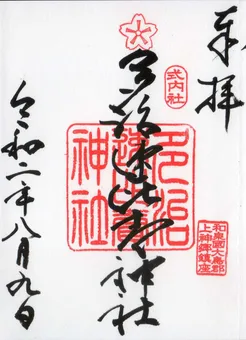 奉拝
式内社
和泉國大鳥郡
上神郷鎮座
多治速比売神社
多治
速比賣
神社
令和二年八月九日